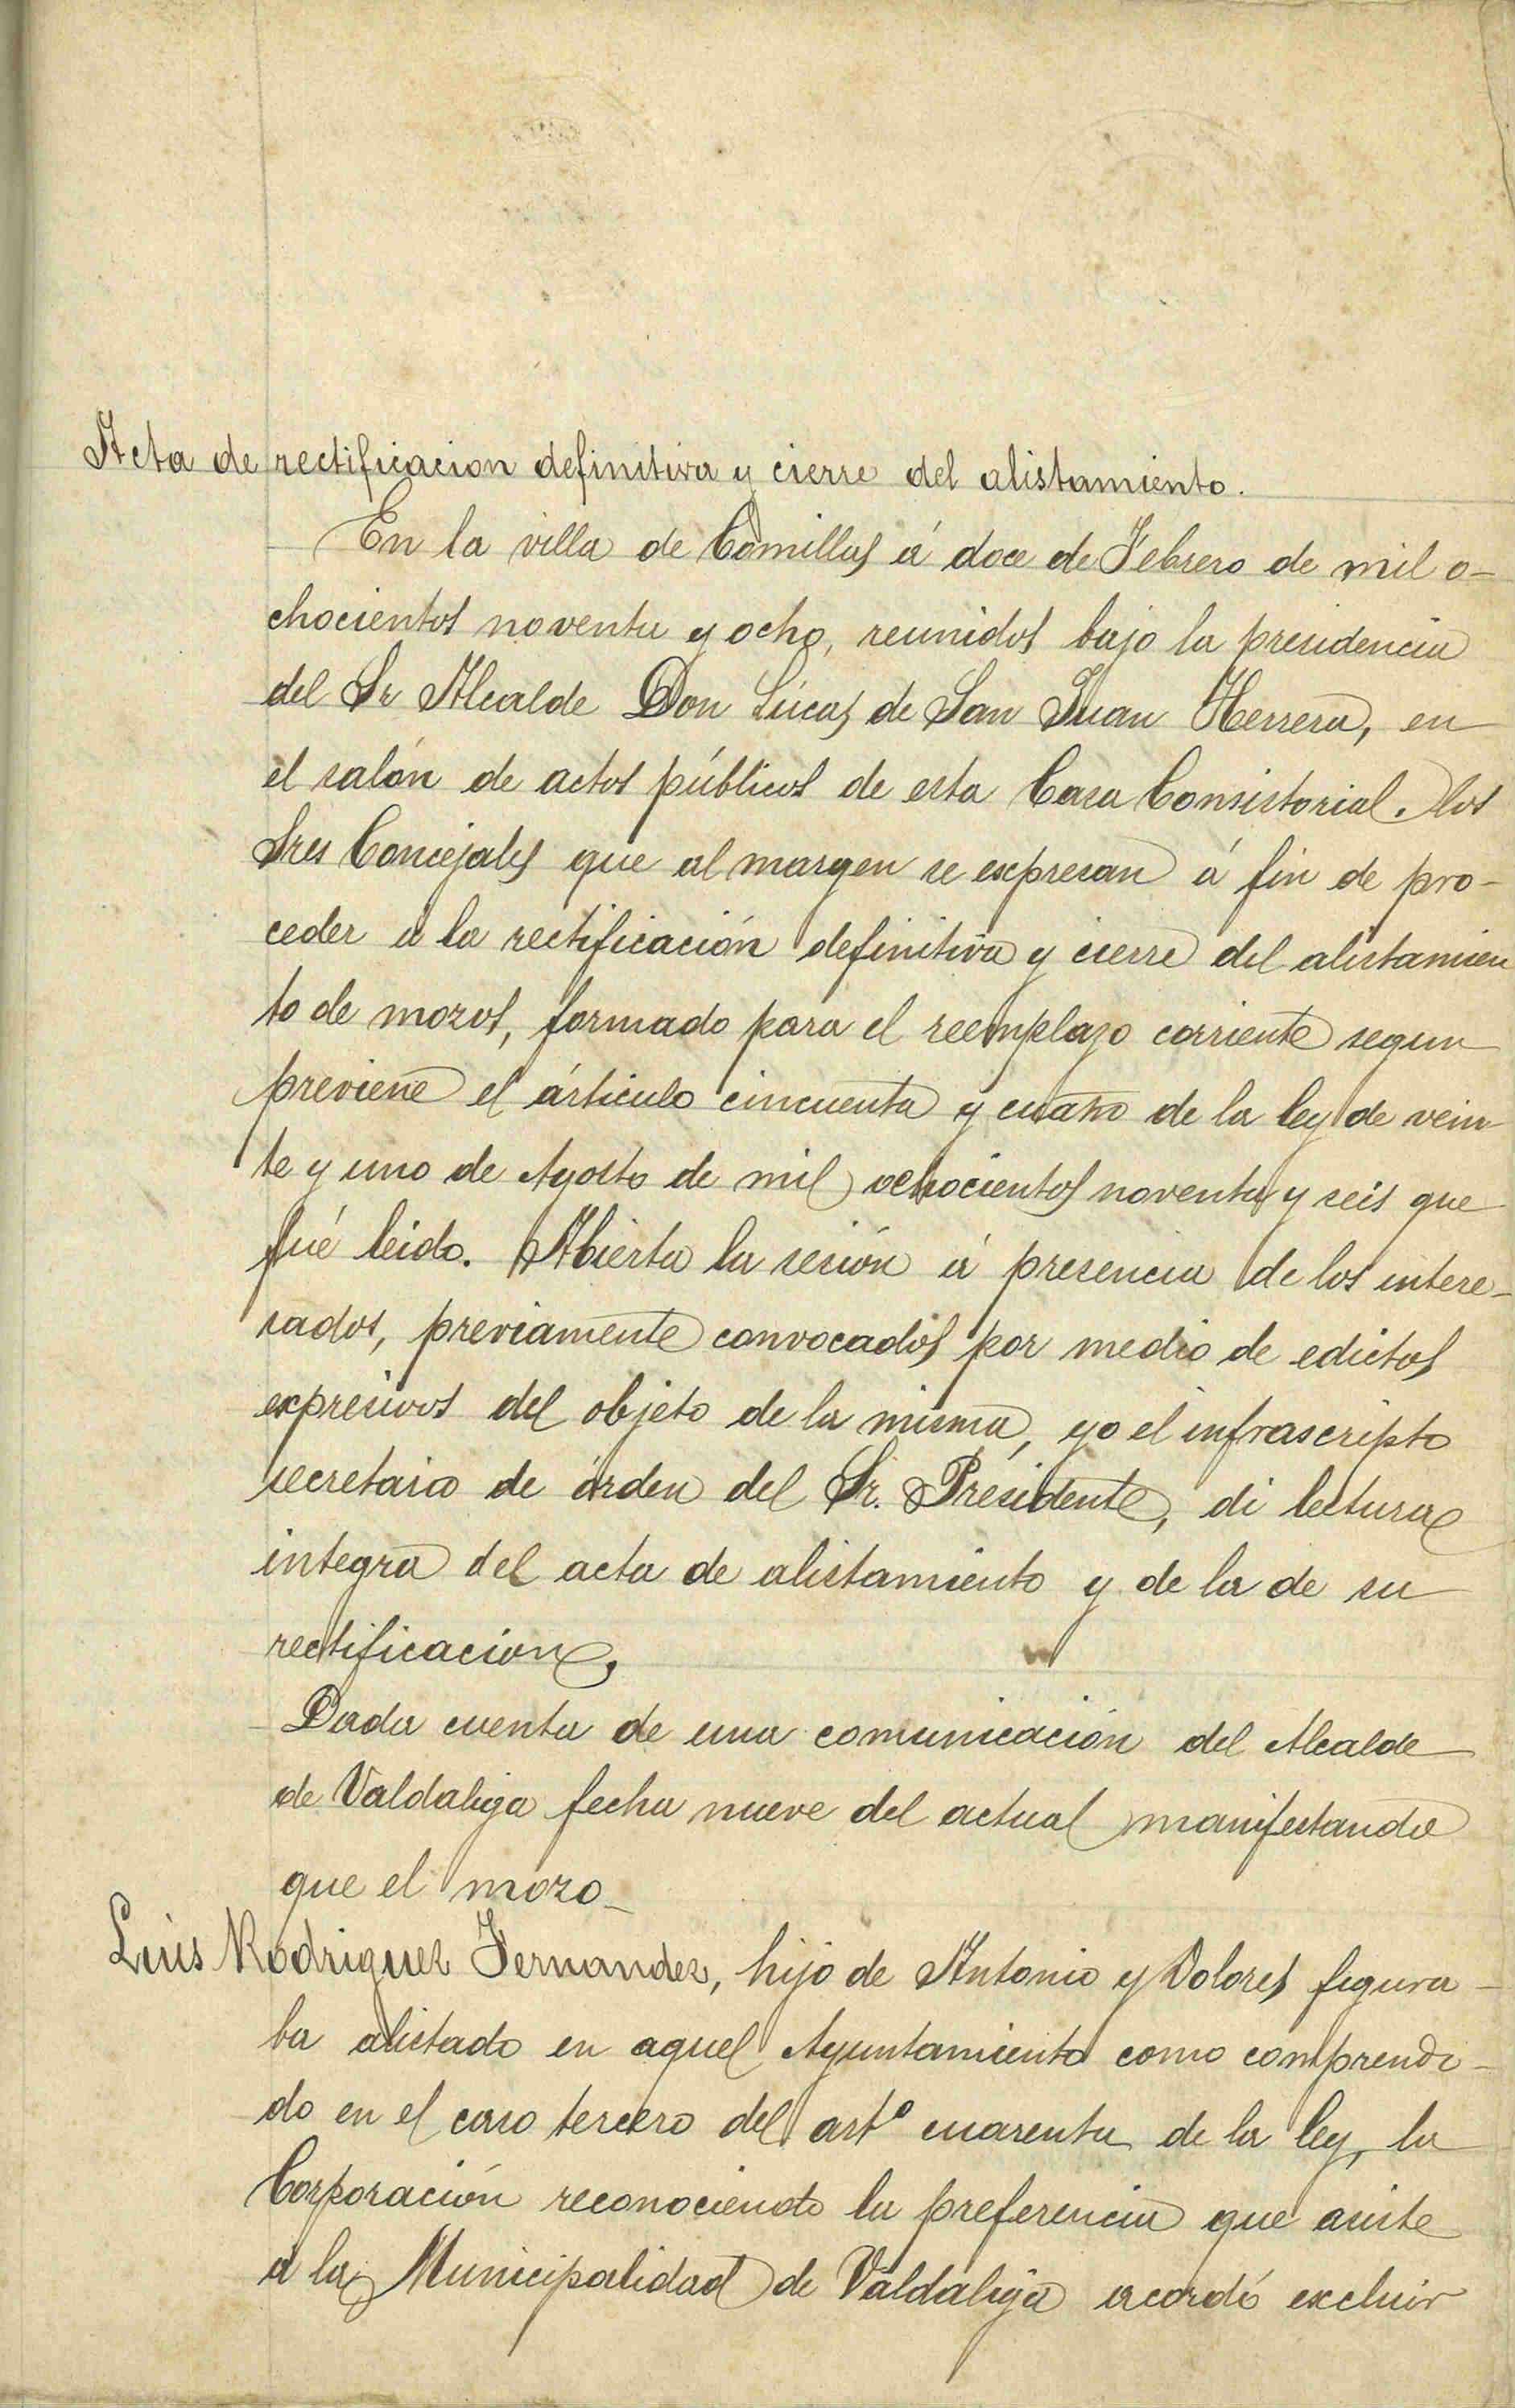 Acta de rectificacion definitiva y cierre del alistamiento.
En la villa de Comillas á doce de Febrero de mil o-
chocientos noventa y ocho, reunidos bajo la presidencia
del Sr Alcalde Don Lúcas de San Juan Herrera, en
el salón de actos públicos de esta Casa Consistorial. los
Sres Concejales que al margen se expresan á fin de pro-
ceder á la rectificación definitiva y cierre del alistamien
to de mozos, formado para el reemplazo corriente segun
previene el árticulo cincuenta y cuatro de la ley de vein-
te y uno de Agosto de mil ochocientos noventa y seis que
fué leido. Abierta la sesión á presencia de los intere-
sados, previamente convocados por medio de edictos
expresivos del objeto de la misma, yo el infrascripto
secretario de órden del Sr. Presidente, di lectura
integra del acta de alistamiento y de la de su
rectificacion,
Dada cuenta de una comunicación del Alcalde
de Valdaliga fecha nueve del actual manifestando
que el mozo-
Luis Rodriguez Fernandez, hijo de Antonio y Dolores figura-
ba alistado en aquel Ayuntamiento como comprendi-
do en el caso tercero del artº cuarenta de la ley, la
Corporación reconociendo la preferencia que asiste
a la Municipalidad de Valdaliga acordó excluir